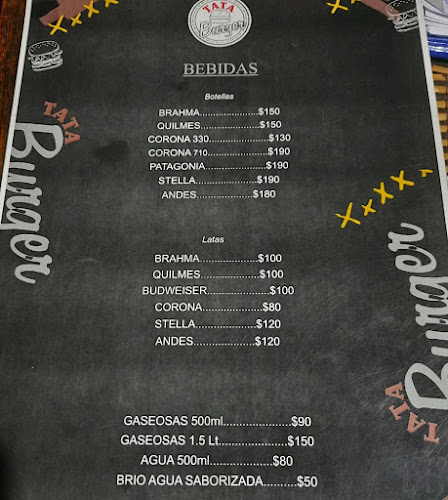 TATA
Burger
BEBIDAS
Botellas
BRAHMA......................$150
QUILMES....................$150
CORONA 330....................$130
CORONA 710....................$190
PATAGONIA....................$190
STELLA....................$190
ANDES...................$180
Latas
BRAHMA...................$100
QUILMES...................$100
BUDWEISER.....................$100
CORONA....................$80
STELLA...................$120
ANDES....................$120
GASEOSAS 500ml......................$90
GASEOSAS 1.5 Lt......................$150
AGUA 500ml....................$80
BRIO AGUA SABORIZADA..........$50
TATA
Burger
TATA
Burger